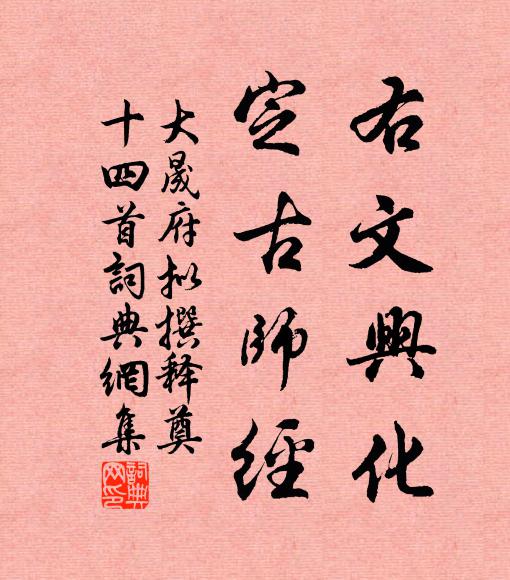 右文興化
定古師經
大晟府拟撰释奠
十四首詞典網集
詞典网印